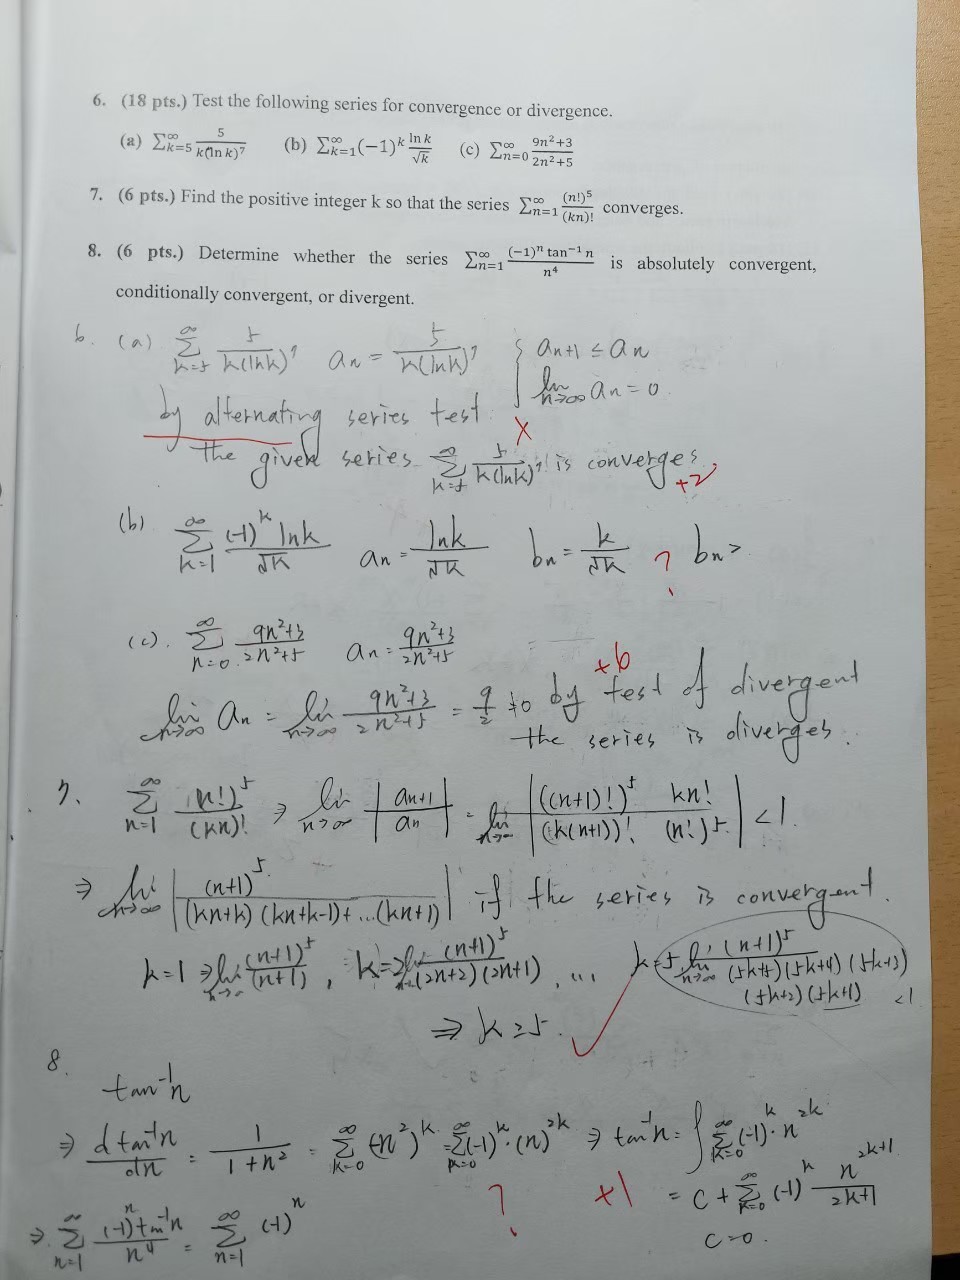 6. (18 pts.) Test the following series for convergence or divergence.
(a) ∑_{k=5}^{∞} 5/(k(ln k)^7) (b) ∑_{k=1}^{∞} (-1)^k ln k/√k (c) ∑_{n=0}^{∞} (9n²+3)/(2n²+5)
7. (6 pts.) Find the positive integer k so that the series ∑_{n=1}^{∞} (n!)^5/(kn)! converges.
8. (6 pts.) Determine whether the series ∑_{n=1}^{∞} (-1)^n tan^{-1} n/n^4 is absolutely convergent,
conditionally convergent, or divergent.
6. (a) ∑_{k=5}^{∞} 5/(k(lnk)^7) an = 5/(k(lnk)^7) { an+1 ≤ an
lim_{n→∞} an = 0
by alternating series test
the given series ∑_{k=5}^{∞} 5/(k(lnk)^7) is converges. +2
(b) ∑_{k=1}^{∞} (-1)^k lnk/√k an = lnk/√k bn = k/√k ? bn>
(c). ∑_{n=0}^{∞} (9n²+3)/(2n²+5) an = (9n²+3)/(2n²+5)
+6
lim_{n→∞} an = lim_{n→∞} (9n²+3)/(2n²+5) = 9/2 ≠0 by test of divergent
the series is diverges.
7. ∑_{n=1}^{∞} (n!)^5/(kn)! ⇒ lim_{n→∞} |an+1/an| = lim_{n→∞} |((n+1)!)^5/(k(n+1))! kn!/(n!)^5| < 1.
⇒ lim_{n→∞} |(n+1)^5/((kn+k)(kn+k-1)+...(kn+1))| if the series is convergent.
k=1 ⇒ lim_{n→∞} (n+1)^5/(n+1), k=2 lim (n+1)^5/((2n+2)(2n+1)), ... k=5, lim_{n→∞} (n+1)^5/((5k+5)(5k+4)(5k+3)
(5k+2)(5k+1)) <1
⇒ k≥5.
8.
tan^{-1}n
⇒ d tan^{-1}n/dn = 1/(1+n²) = ∑_{k=0}^{∞} (-n²)^k = ∑_{k=0}^{∞} (-1)^k·(n)^{2k} ⇒ tan^{-1}n = ∫ ∑_{k=0}^{∞} (-1)^k·n^{2k}
? +1 = C + ∑_{k=0}^{∞} (-1)^k n^{2k+1}/(2k+1)
⇒ ∑_{n=1}^{∞} (-1)^n tan^{-1}n/n^4 = ∑_{n=1}^{∞} (-1)^n
C=0.